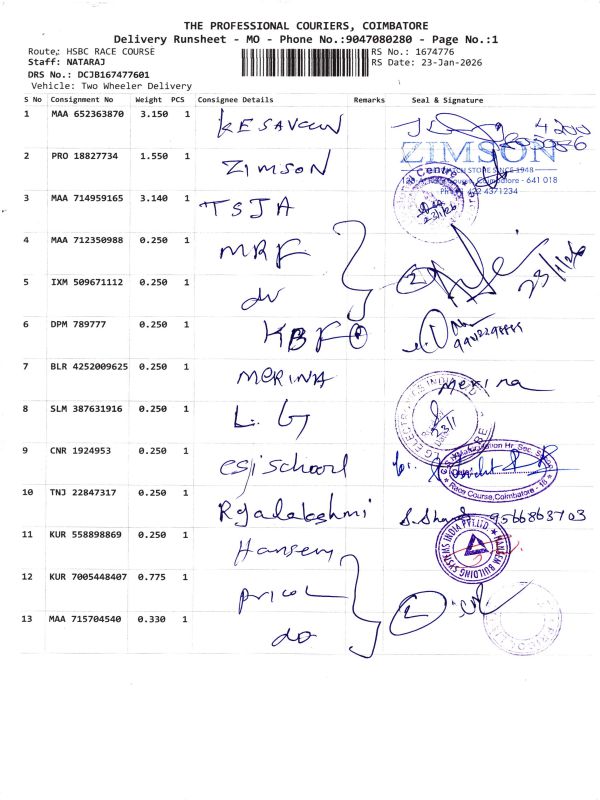 THE PROFESSIONAL COURIERS, COIMBATORE
Delivery Runsheet - MO - Phone No.:9047080280 - Page No.:1
Route: HSBC RACE COURSE
RS No.: 1674776
Staff: NATARAJ
RS Date: 23-Jan-2026
DRS No.: DCJB167477601
Vehicle: Two Wheeler Delivery
S No Consignment No Weight PCS Consignee Details Remarks Seal & Signature
1 MAA 652363870 3.150 1 KESAVAN
2 PRO 18827734 1.550 1 ZIMSON ZIMSON
WATCH STORE SINCE 1948
Coimbatore - 641 018
3 MAA 714959165 3.140 1 TSJA
4 MAA 712350988 0.250 1 MRF 2 23/1/26
5 IXM 509671112 0.250 1 do
6 DPM 789777 0.250 1 KBF
7 BLR 4252009625 0.250 1 MERINA Merina
8 SLM 387631916 0.250 1 L.G
9 CNR 1924953 0.250 1 csi school for.
Race Course, Coimbatore - 18
10 TNJ 22847317 0.250 1 Rajalakshmi 9566863703
11 KUR 558898869 0.250 1 Hansen
HANSEN BUILDING SYSTEMS INDIA PVT.LTD
12 KUR 7005448407 0.775 1 pricol 2
13 MAA 715704540 0.330 1 do